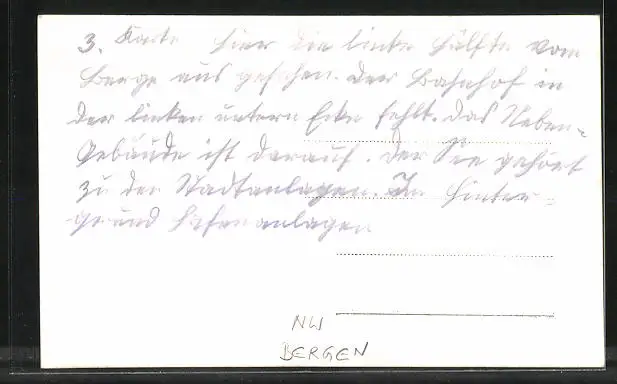 3. Karte hier die linke Hälfte vom
Berge aus gesehen. Der Bahnhof in
der linken untern Ecke fehlt. Das Neben-
Gebäude ist darauf. Der See gehört
zu den Stadtanlagen. Im Hinter-
grund Hafenanlagen
NW
BERGEN